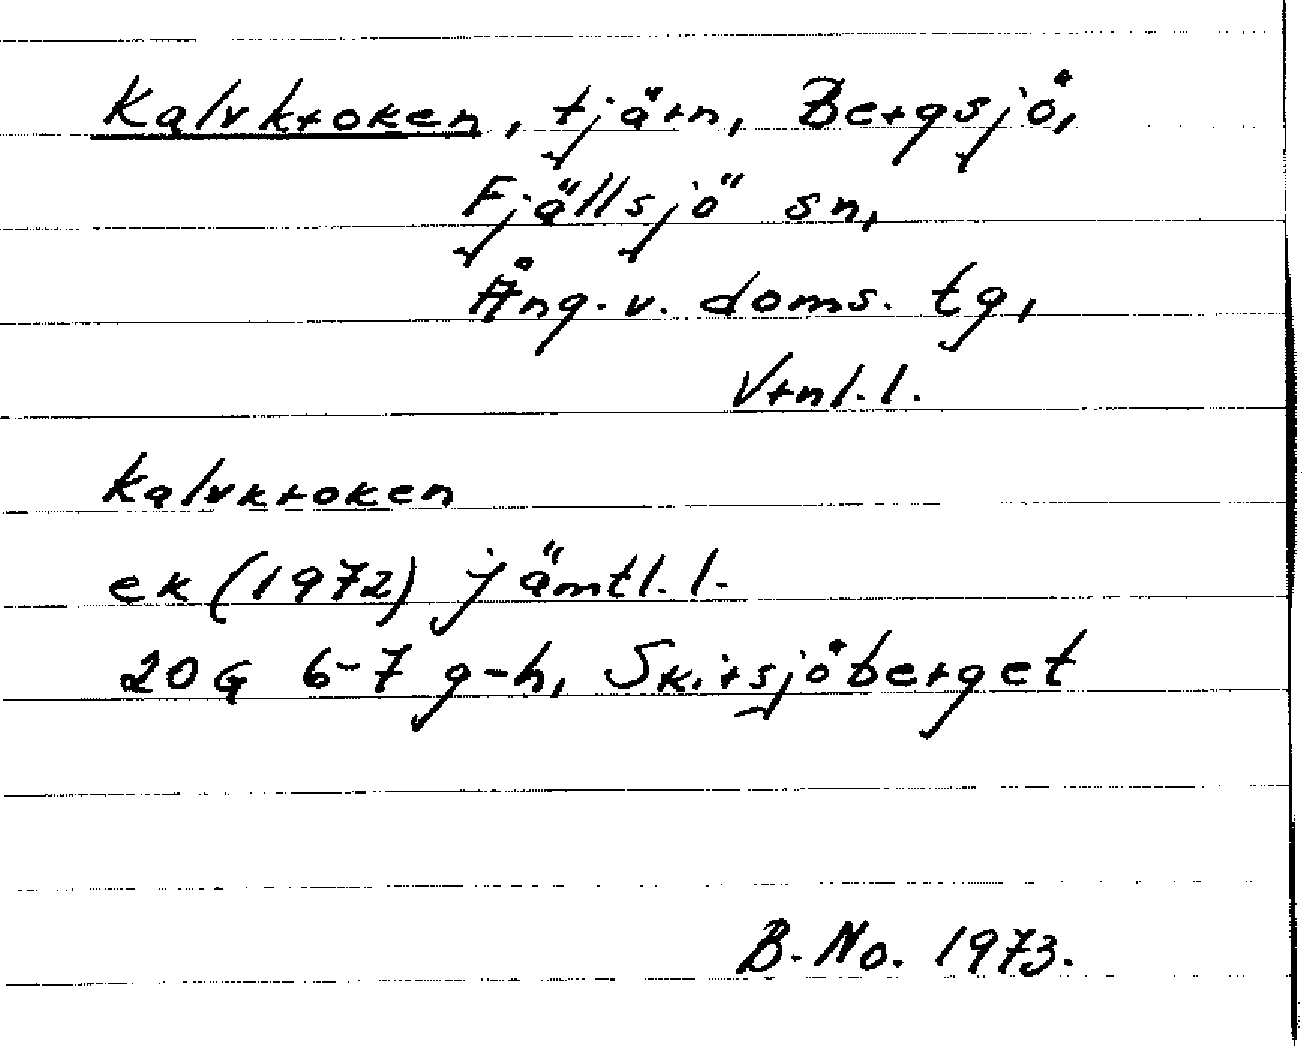 Kalvkroken, tjärn, Bergsjö,
Fjällsjö sn,
Ång. v. doms. tg,
Vrnl. l.
Kalvkroken
ek (1972) jämtl. l.
20 G 6-7 g-h, Skirsjöberget
B. No. 1973.